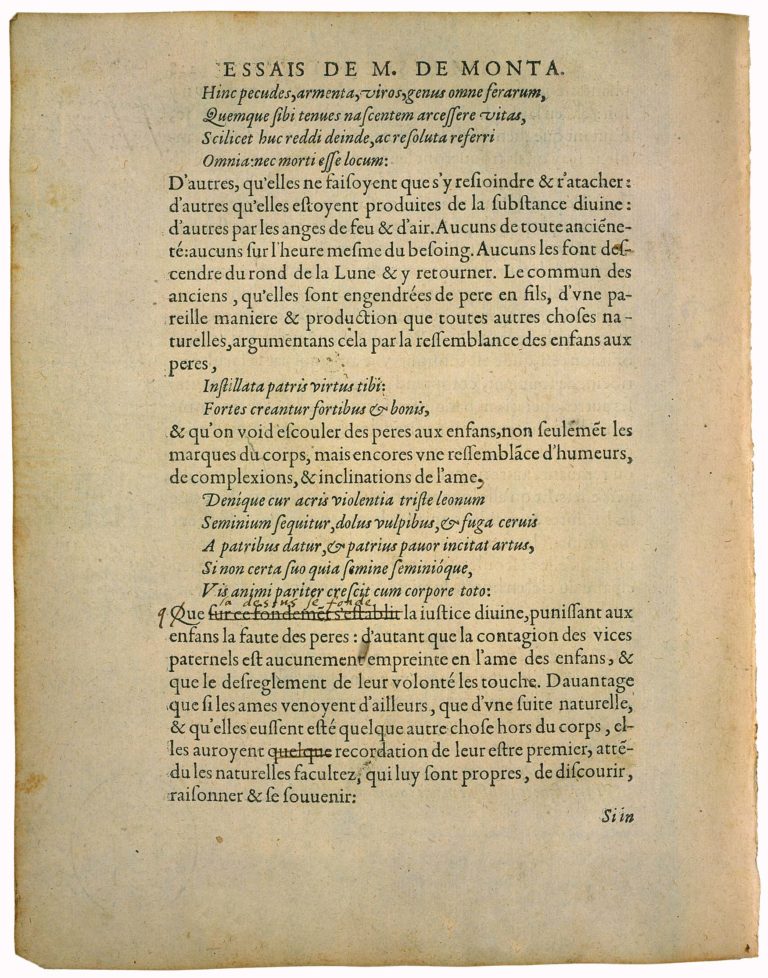 ESSAIS DE M. DE MONTA.
Hinc pecudes, armenta, viros, genus omne ferarum,
Quemque ſibi tenues naſcentem arceſſere vitas,
Scilicet huc reddi deinde, ac reſoluta referri
Omnia: nec morti eſſe locum:
D'autres, qu'elles ne faiſoyent que s'y reſioindre & r'atacher:
d'autres qu'elles eſtoyent produites de la ſubſtance diuine:
d'autres par les anges de feu & d'air. Aucuns de toute anciēne-
té: aucuns ſur l'heure meſme du beſoing. Aucuns les font deſ-
cendre du rond de la Lune & y retourner. Le commun des
anciens, qu'elles ſont engendrées de pere en fils, d'vne pa-
reille maniere & production que toutes autres choſes na-
turelles, argumentans cela par la reſſemblance des enfans aux
peres,
Inſtillata patris virtus tibi:
Fortes creantur fortibus & bonis,
& qu'on void eſcouler des peres aux enfans, non ſeulemēt les
marques du corps, mais encores vne reſſemblāce d'humeurs,
de complexions, & inclinations de l'ame,
Denique cur acris violentia triſte leonum
Seminium ſequitur, dolus vulpibus, & fuga ceruis
A patribus datur, & patrius pauor incitat artus,
Si non certa ſuo quia ſemine ſeminióque,
Vis animi pariter creſcit cum corpore toto:
la deſsus se fonde
q Que ſur ce fondemēt s'eſtablit la iuſtice diuine, puniſſant aux
enfans la faute des peres: d'autant que la contagion des vices
paternels eſt aucunement empreinte en l'ame des enfans, &
que le deſreglement de leur volonté les touche. Dauantage
que ſi les ames venoyent d'ailleurs, que d'vne ſuite naturelle,
& qu'elles euſſent eſté quelque autre choſe hors du corps, el-
les auroyent quelque recordation de leur eſtre premier, attē-
du les naturelles facultez, qui luy ſont propres, de diſcourir,
raiſonner & ſe ſouuenir:
Si in